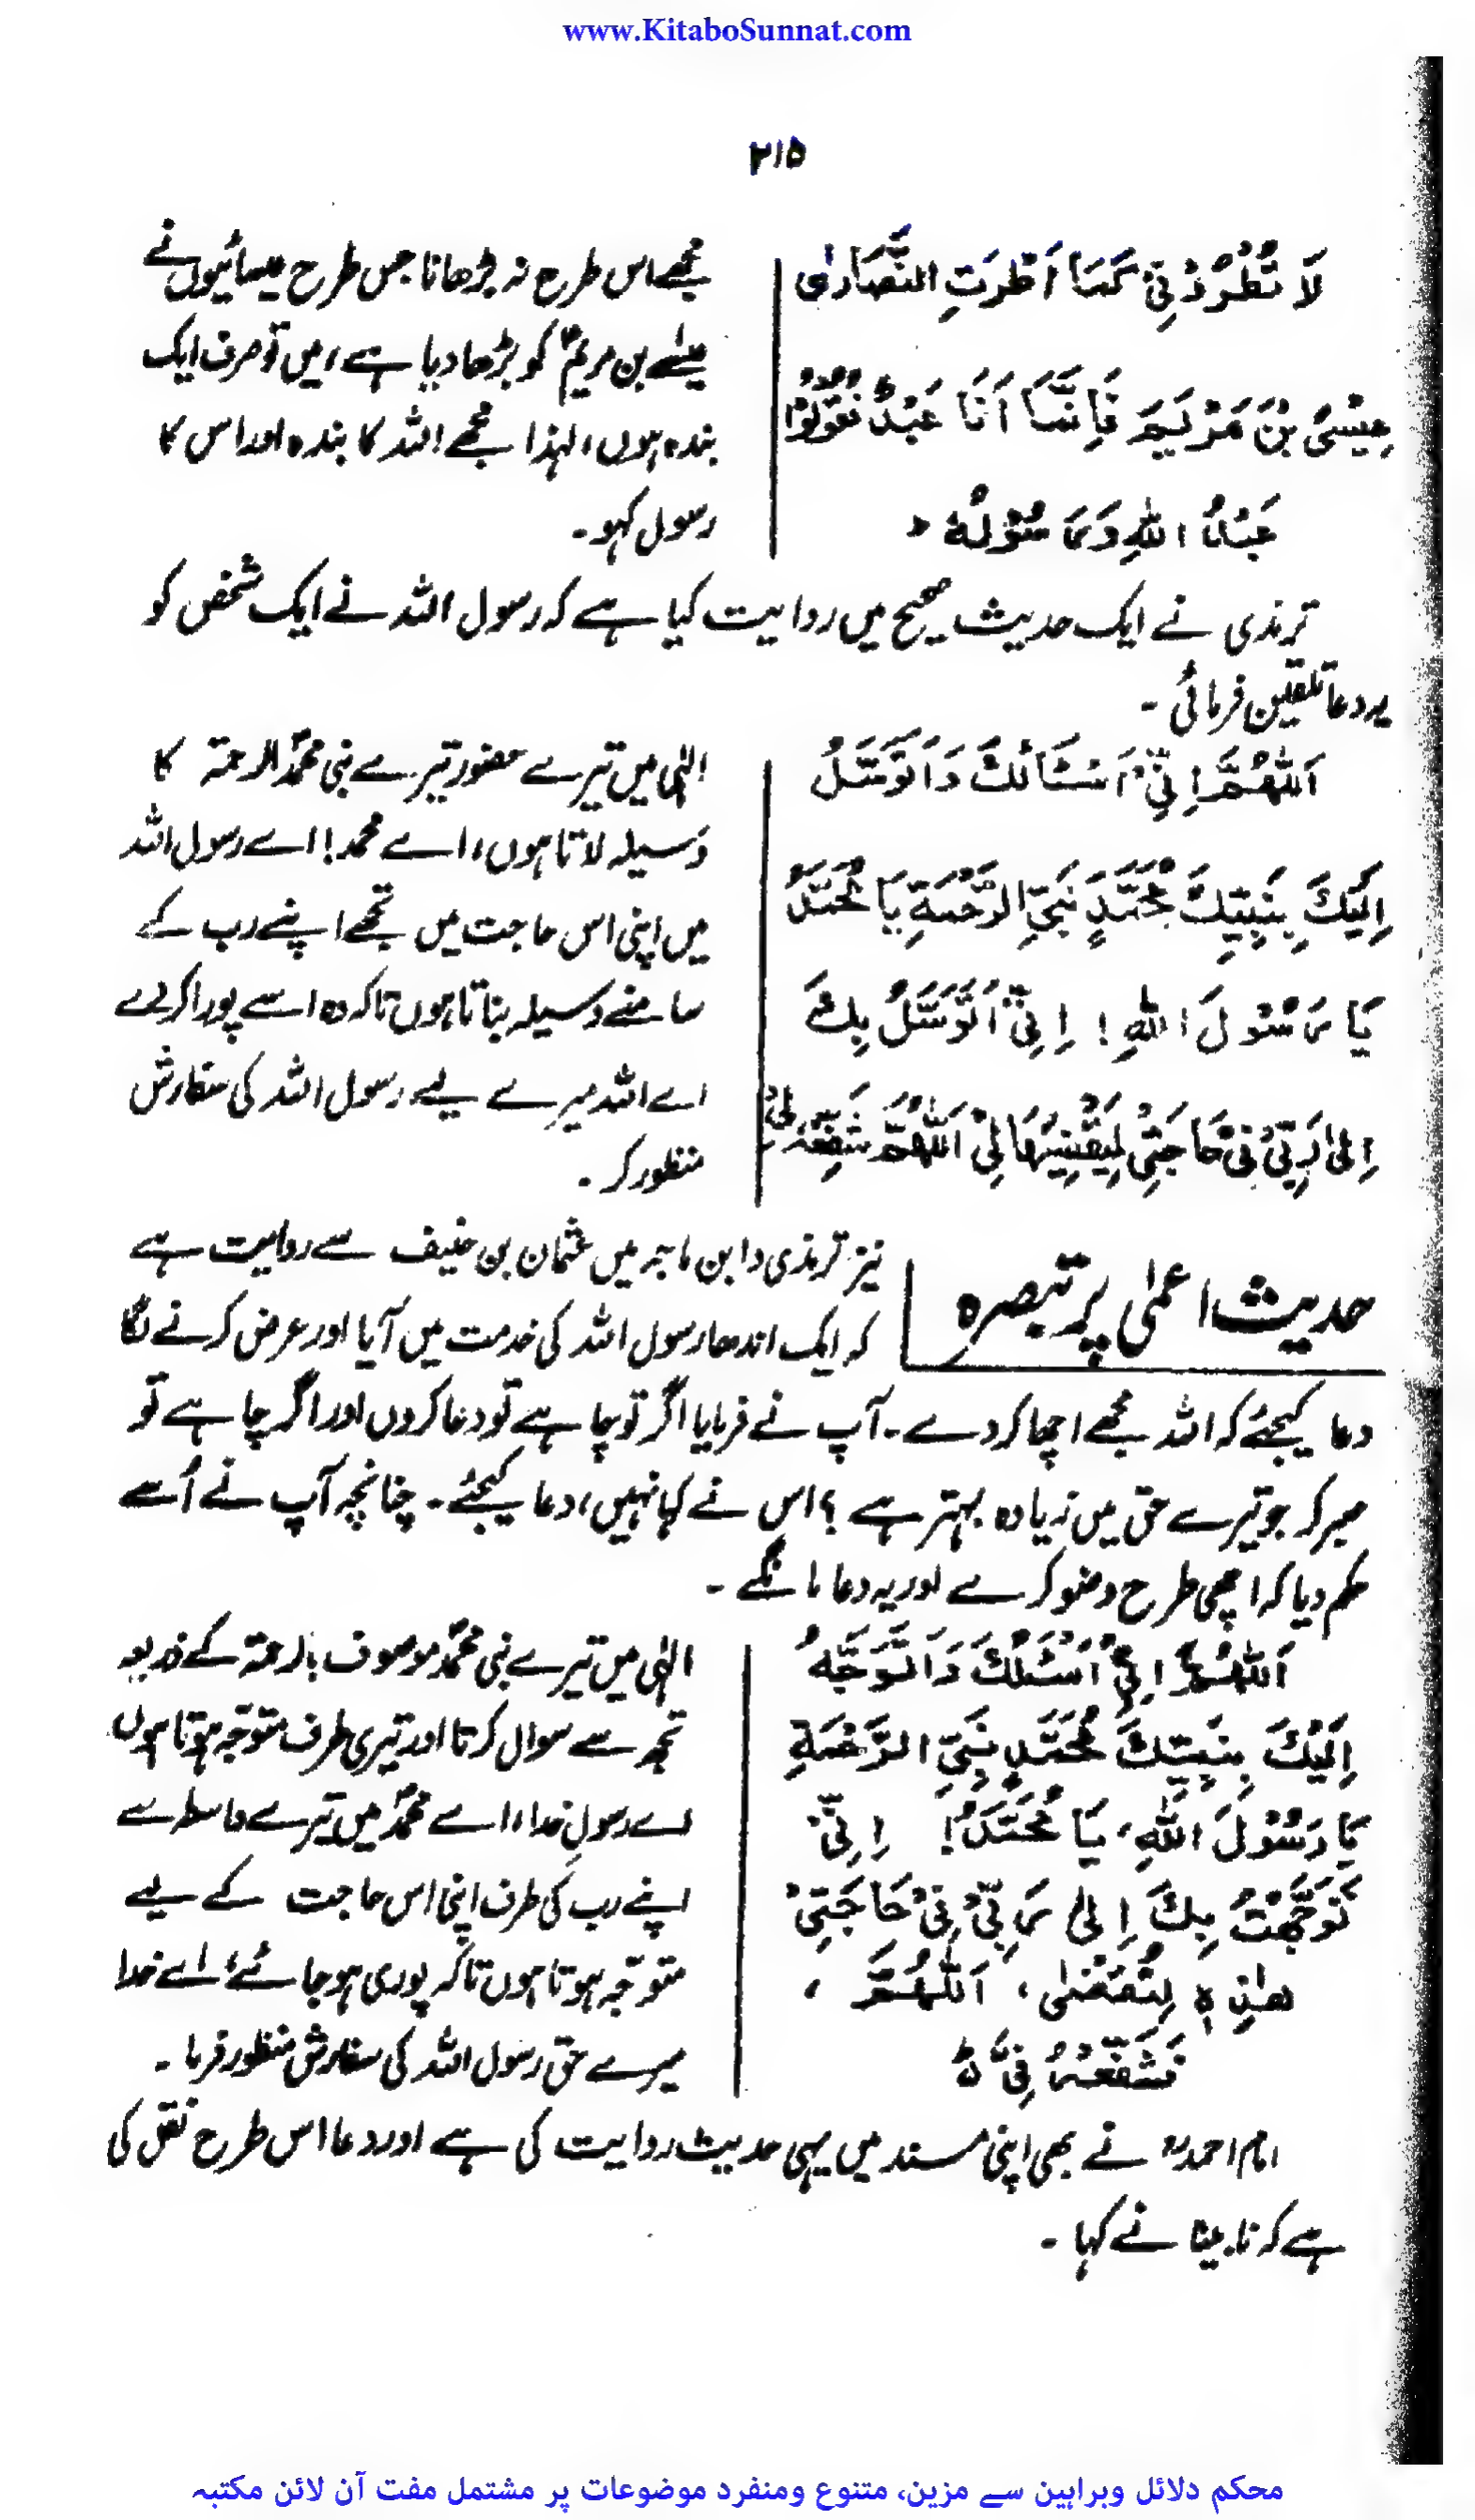 www.KitaboSunnat.com
۲۱۵
لَا تُطْرُوْنِیْ کَمَا اَطْرَتِ النَّصَارٰی
عِیْسَی بْنَ مَرْیَمَ فَاِنَّمَا اَنَا عَبْدٌ فَقُوْلُوْا
عَبْدُ اللّٰہِ وَرَسُوْلُہٗ
مجھے اس طرح نہ بڑھانا جس طرح عیسائیوں نے
عیسٰے بن مریمؑ کو بڑھا دیا ہے، میں تو صرف ایک
بندہ ہوں، لہذا مجھے اللہ کا بندہ اور اس کا
رسول کہو۔
ترمذی نے ایک حدیث صحیح میں روایت کیا ہے کہ رسول اللہ نے ایک شخص کو
یہ دعا تلقین فرمائی۔
اَللّٰھُمَّ اِنِّیْ اَسْئَالُکَ وَاَتَوَسَّلُ
اِلَیْکَ بِنَبِیِّکَ مُحَمَّدٍ نَبِیِّ الرَّحْمَۃِ یَا مُحَمَّدُ
یَا رَسُوْلَ اللّٰہِ! اِنِّیْ اَتَوَسَّلُ بِکَ
اِلیٰ رَبِّیْ فِیْ حَاجَتِیْ لِیَقْضِیَہَا لِیْ اَللّٰھُمَّ شَفِّعْہُ فِیَّ
الٰہی میں تیرے حضور تیرے نبی محمدؐ الرحمۃ کا
وسیلہ لاتا ہوں، اے محمد! اے رسول اللہ
میں اپنی اس حاجت میں تجھے اپنے رب کے
سامنے وسیلہ بناتا ہوں تاکہ وہ اسے پورا کردے
اے اللہ میرے لیے رسول اللہ کی سفارش
منظور کر۔
حدیث اعمٰی پر تبصرہ
نیز ترمذی و ابن ماجہ میں عثمان بن حنیف سے روایت ہے
کہ ایک اندھا رسول اللہ کی خدمت میں آیا اور عرض کرنے لگا
دعا کیجئے کہ اللہ مجھے اچھا کردے۔ آپ نے فرمایا اگر تو چاہے تو دعا کروں اور اگر چاہے تو
صبر کر جو تیرے حق میں زیادہ بہتر ہے؟ اس نے کہا نہیں، دعا کیجئے۔ چنانچہ آپ نے اُسے
حکم دیا کہ اچھی طرح وضو کرے اور یہ دعا مانگے۔
اَللّٰھُمَّ اِنِّیْ اَسْئَلُکَ وَاَتَوَجَّہُ
اِلَیْکَ بِنَبِیِّکَ مُحَمَّدٍ نَبِیِّ الرَّحْمَۃِ
یَا رَسُوْلَ اللّٰہِ، یَا مُحَمَّدُ! اِنِّیْ
تَوَجَّھْتُ بِکَ اِلیٰ رَبِّیْ فِیْ حَاجَتِیْ
ھٰذِہٖ لِتُقْضٰی، اَللّٰھُمَّ،
فَشَفِّعْہُ فِیَّ
الٰہی میں تیرے نبی محمدؐ موصوف بالرحمۃ کے ذریعہ
تجھ سے سوال کرتا اور تیری طرف متوجہ ہوتا ہوں
اے رسولِ خدا، اے محمدؐ میں تیرے واسطہ سے
اپنے رب کی طرف اپنی اس حاجت کے لیے
متوجہ ہوتا ہوں تاکہ پوری ہوجائے، اے خدا
میرے حق رسول اللہ کی سفارش منظور فرما۔
امام احمدؒ نے بھی اپنی مسند میں یہی حدیث روایت کی ہے اور دعا اس طرح نقل کی
ہے کہ نابینا نے کہا۔
محکم دلائل وبراہین سے مزین، متنوع ومنفرد موضوعات پر مشتمل مفت آن لائن مکتبہ